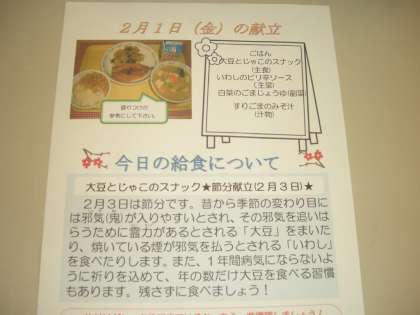 2月1日(金)の献立
ごはん
大豆とじゃこのスナック
(主食)
いわしのピリ辛ソース
(主菜)
白菜のごまじょうゆ(副菜)
すりごまのみそ汁
(汁物)
盛りつけの
参考にして下さい。
今日の給食について
大豆とじゃこのスナック★節分献立(2月3日)★
2月3日は節分です。昔から季節の変わり目に
は邪気(鬼)が入りやすいとされ、その邪気を追いは
らうために霊力があるとされる「大豆」をまいた
り、焼いている煙が邪気を払うとされる「いわし」
を食べたりします。また、1年間病気にならないよ
うに祈りを込めて、年の数だけ大豆を食べる習慣
もあります。残さずに食べましょう!